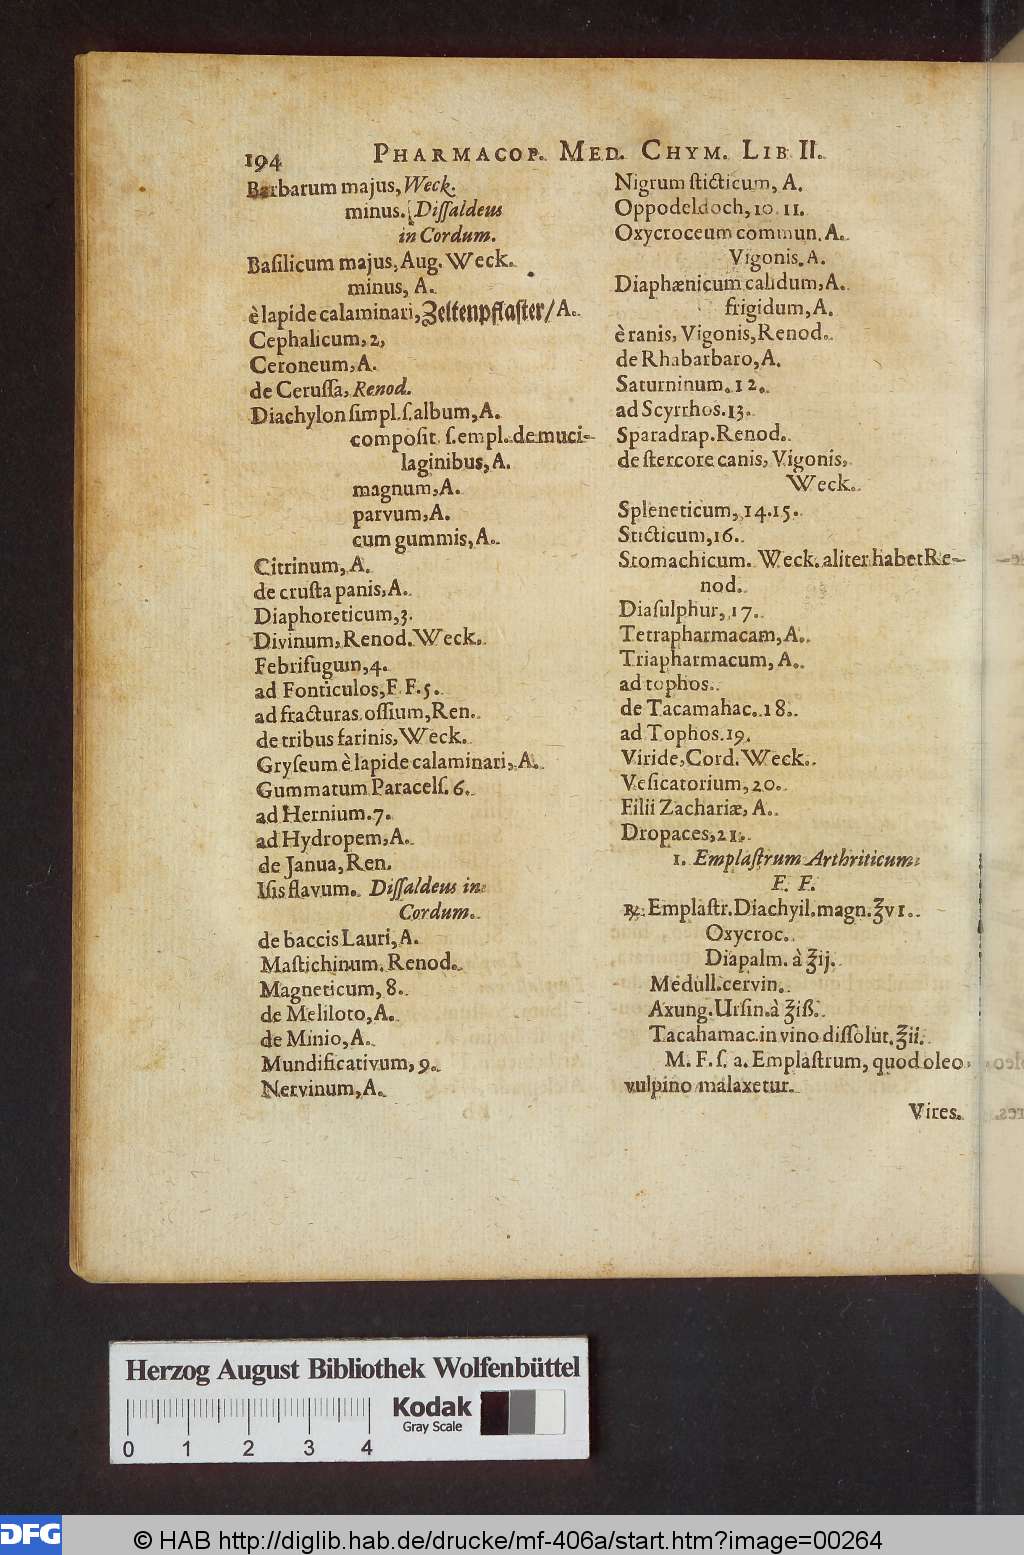 194 PHARMACOP. MED. CHYM. LIB II.
Barbarum majus, Weck.
minus. {Dissaldeus
in Cordum.
Baſilicum majus, Aug. Weck.
minus, A.
è lapide calaminari, Zeltenpflaſter/A.
Cephalicum, 2,
Ceroneum, A.
de Ceruſſa, Renod.
Diachylon ſimpl. ſ. album, A.
compoſit. ſ. empl. de muci-
laginibus, A.
magnum, A.
parvum, A.
cum gummis, A.
Citrinum, A.
de cruſta panis, A.
Diaphoreticum, 3.
Divinum, Renod. Weck.
Febrifugum, 4.
ad Fonticulos, F. F. 5.
ad fracturas oſſium, Ren.
de tribus farinis, Weck.
Gryſeum è lapide calaminari, A.
Gummatum Paracelſ. 6.
ad Hernium. 7.
ad Hydropem, A.
de Janua, Ren.
Iſis flavum. Diſſaldeus in
Cordum.
de baccis Lauri, A.
Maſtichinum. Renod.
Magneticum, 8.
de Meliloto, A.
de Minio, A.
Mundificativum, 9.
Nervinum, A.
Nigrum ſticticum, A.
Oppodeldoch, 10. 11.
Oxycroceum commun. A.
Vigonis. A.
Diaphænicum calidum, A.
frigidum, A.
è ranis, Vigonis, Renod.
de Rhabarbaro, A.
Saturninum. 12.
ad Scyrrhos. 13.
Sparadrap. Renod.
de ſtercore canis, Vigonis,
Weck.
Spleneticum, 14. 15.
Sticticum, 16.
Stomachicum. Weck. aliter habet Re-
nod.
Diaſulphur, 17.
Tetrapharmacam, A.
Triapharmacum, A.
ad tophos.
de Tacamahac. 18.
ad Tophos. 19.
Viride, Cord. Weck.
Veſicatorium, 20.
Filii Zachariæ, A.
Dropaces, 21.
1. Emplaſtrum Arthriticum:
F. F.
℞. Emplaſtr. Diachyil. magn. ʒvı.
Oxycroc.
Diapalm. à ʒij.
Medull. cervin.
Axung. Urſin. à ʒiß.
Tacahamac. in vino diſſolut. ʒii.
M. F. ſ. a. Emplaſtrum, quod oleo
vulpino malaxetur.
Vires.
Herzog August Bibliothek Wolfenbüttel
Kodak
Gray Scale
0 1 2 3 4
DFG
© HAB http://diglib.hab.de/drucke/mf-406a/start.htm?image=00264